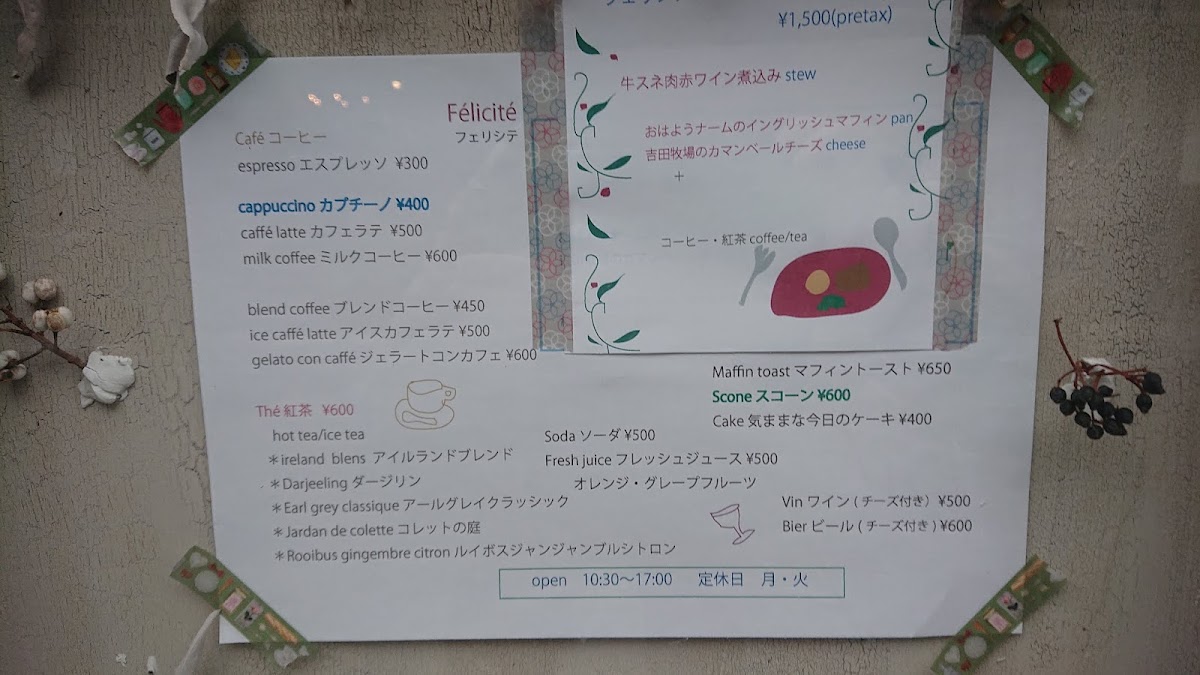 Félicité
フェリシテ
Café コーヒー
espresso エスプレッソ ¥300
cappuccino カプチーノ ¥400
caffé latte カフェラテ ¥500
milk coffee ミルクコーヒー ¥600
blend coffee ブレンドコーヒー ¥450
ice caffé latte アイスカフェラテ ¥500
gelato con caffé ジェラートコンカフェ ¥600
Thé 紅茶 ¥600
hot tea/ice tea
＊ireland blens アイルランドブレンド
＊Darjeeling ダージリン
＊Earl grey classique アールグレイクラッシック
＊Jardan de colette コレットの庭
＊Rooibus gingembre citron ルイボスジャンジャンブルシトロン
¥1,500(pretax)
牛スネ肉赤ワイン煮込み stew
おはようナームのイングリッシュマフィン pan
吉田牧場のカマンベールチーズ cheese
＋
コーヒー・紅茶 coffee/tea
Maffin toast マフィントースト ¥650
Scone スコーン ¥600
Cake 気ままな今日のケーキ ¥400
Soda ソーダ ¥500
Fresh juice フレッシュジュース ¥500
オレンジ・グレープフルーツ
Vin ワイン ( チーズ付き） ¥500
Bier ビール ( チーズ付き ) ¥600
open 10:30〜17:00 定休日 月・火